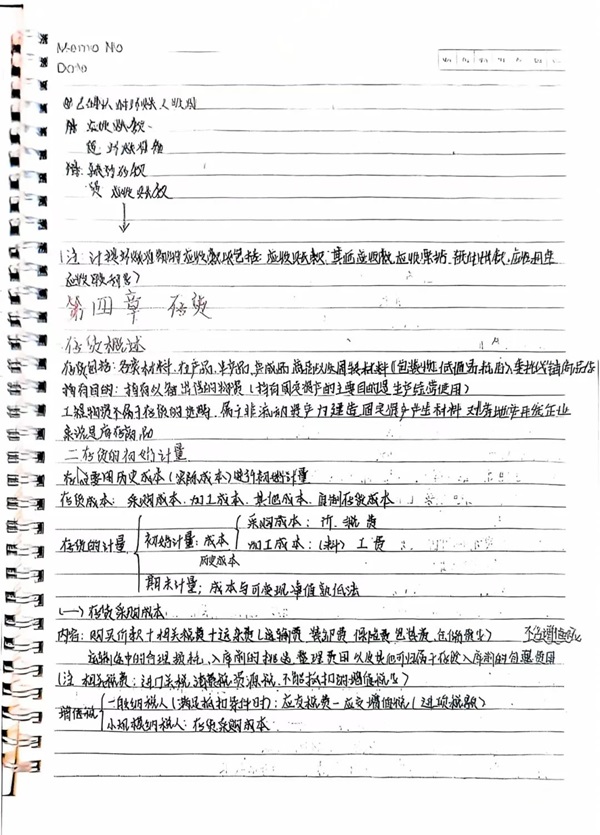 Memo No
Date
②已确认的坏账又收回
借 应收账款
贷 坏账准备
借 银行存款
贷 应收账款
(注 计提坏账准备的应收款项包括:应收账款 其他应收款 应收票据
应收股利等)
第四章 存货
存货概述
存货包括:各类材料、在产品、半产品、产成品 商品以及周转材料(包装物 低值易耗品)、委托代销商品
持有目的:持有以备出售的
(持有固定资产的主要目的是生产经营使用)
工程物资不属于存货的
属于非流动资产 为建造固定资产 材料 对房地产开发企业
来说是库存商品
二 存货的初始计量
存货要用历史成本(实际成本)进行初始计量
存货成本:采购成本、加工成本、其他成本、自制存货成本
存货的计量
初始计量:成本
历史成本
采购成本:价 税 费
加工成本:(料) 工 费
期末计量:成本与可变现净值孰低法
(一)存货采购成本
内容:购买价款+相关税费+运杂费(运输费 装卸费 保险费 包装费 仓储费等) 不含增值税
运输途中的合理损耗、入库前的挑选 整理费用以及其他可归属于存货入库前的合理费用
(注 相关税费:进口关税 消费税 资源税、不能抵扣的增值税等)
增值税
一般纳税人(满足抵扣条件时):应交税费-应交增值税(进项税额)
小规模纳税人:存货采购成本